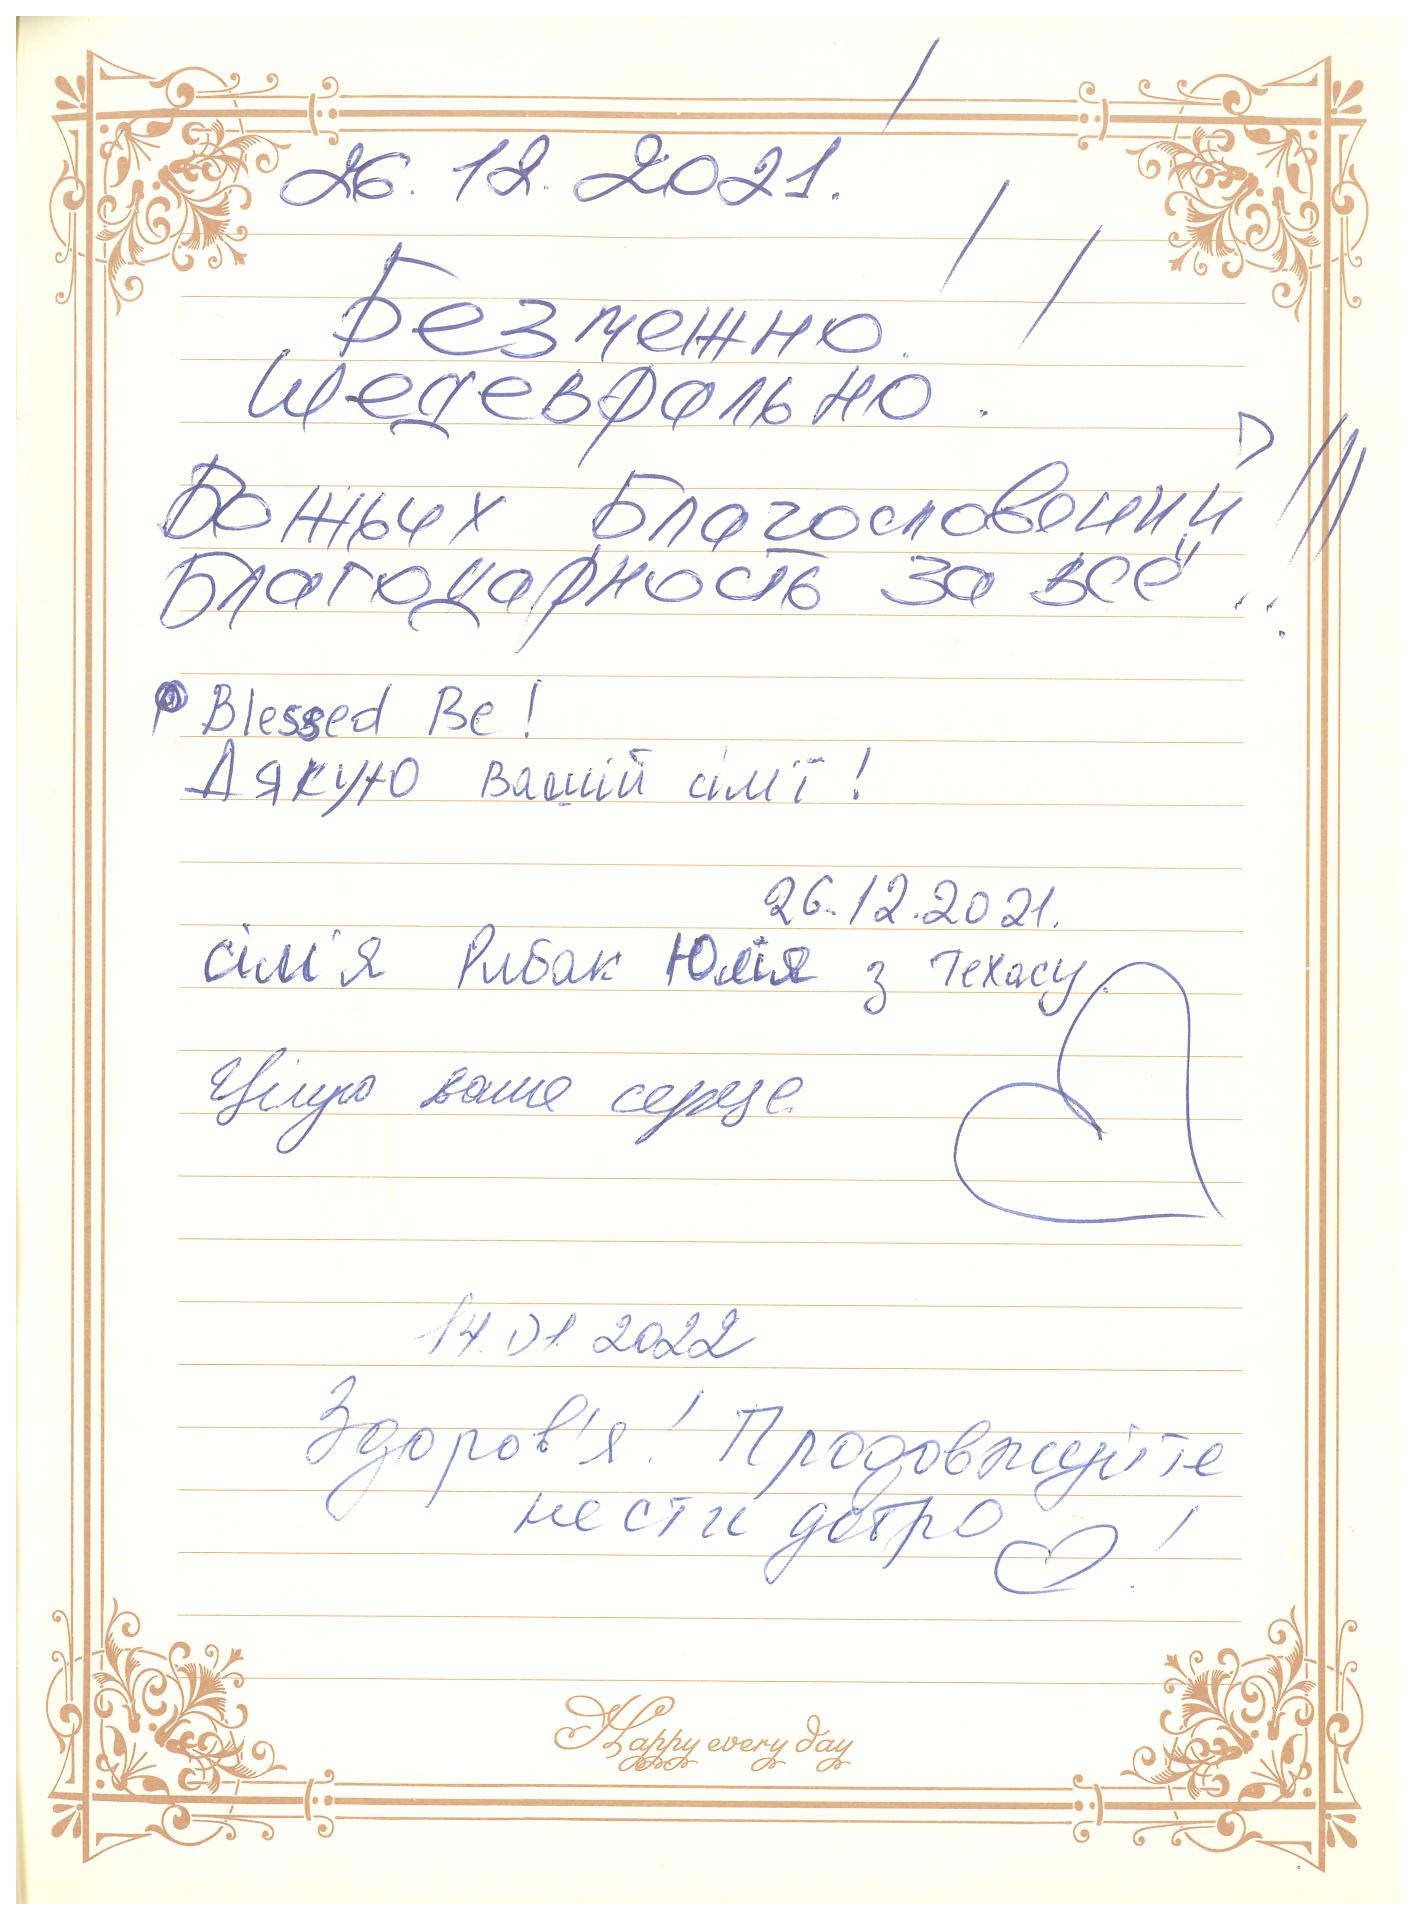 26.12.2021.
Безмежно.
Шедеврально.
Божьих Благословений!!!
Благодарность за всё...
Blessed Be!
Дякую вашій сімї!
26.12.2021.
сім'я Рибак Юлія з Техасу
Цілую ваше серце.
14.01.2022
Здоров'я! Продовжуйте
нести добро!
Happy every day